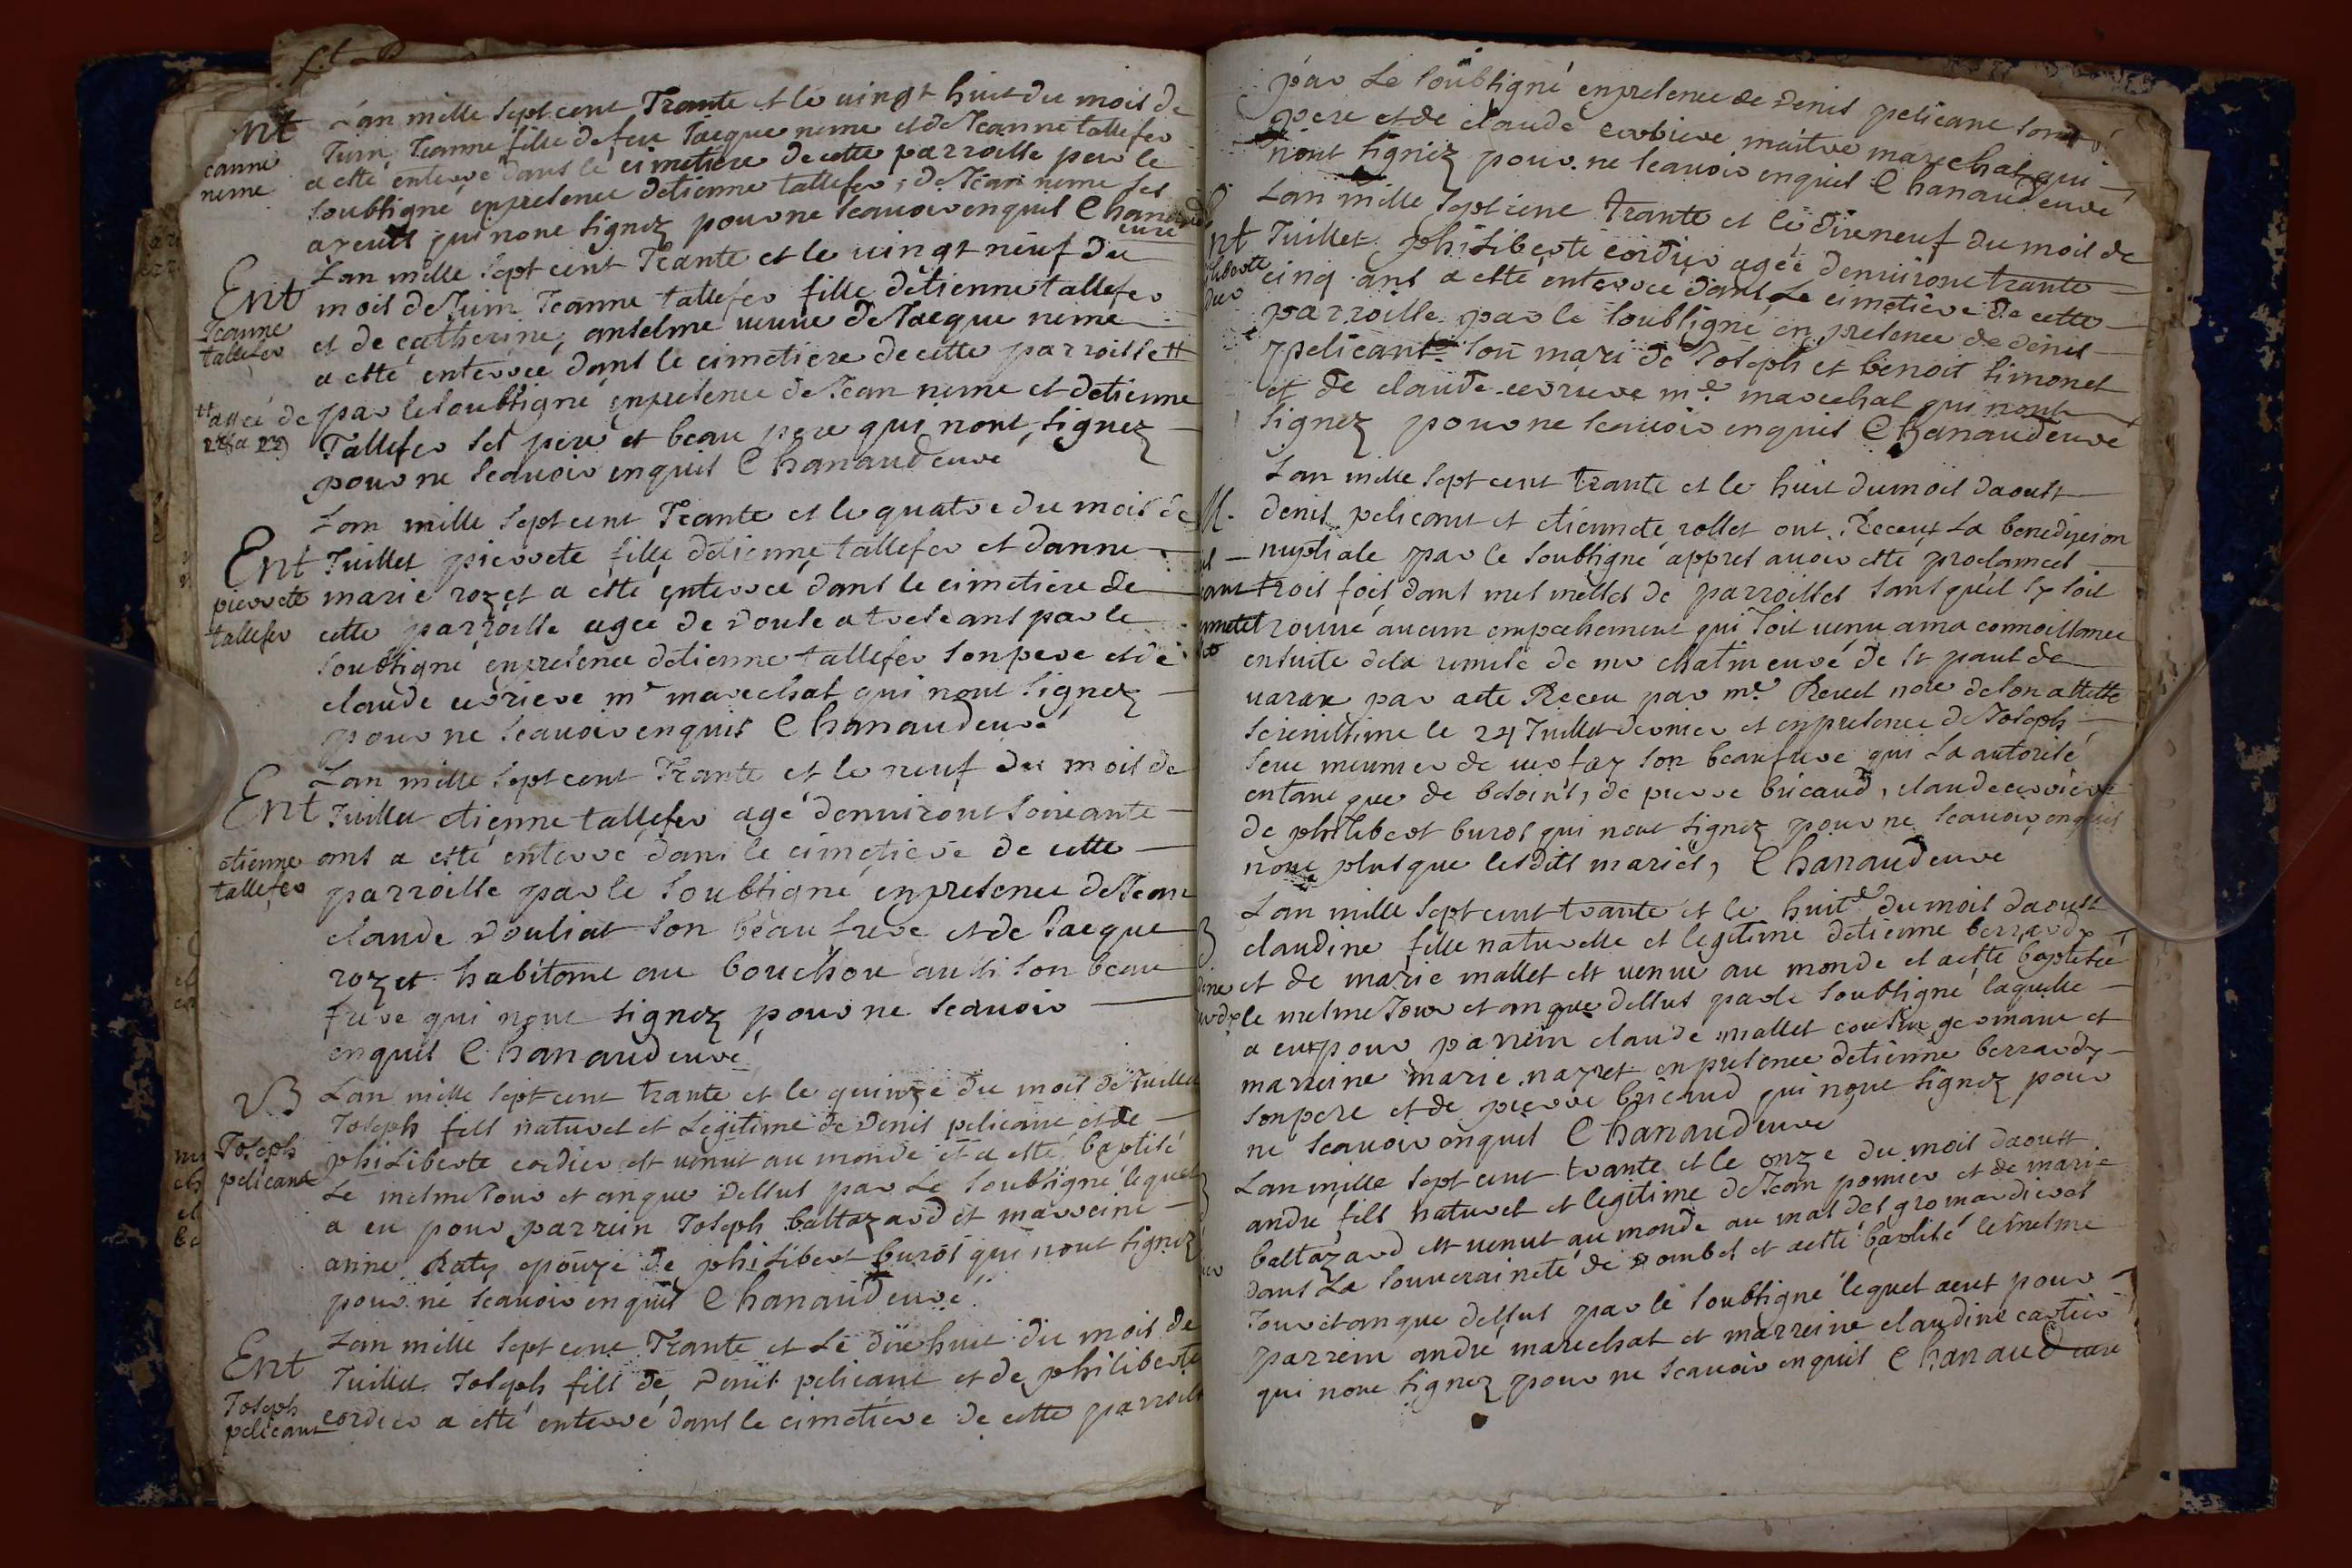 Ent
Jeanne
neme
L'an mille sept cent Trante et le vingt huit du mois de
Juin Jeanne fille de feu Jacque neme et de Jeanne tallefer
a esté enterré dans le cimetiere de cette parroisse par le
soubsigné en presence detienne tallefer, de Jean neme ses
ayeuls qui nont signez pour ne scavoir enquis Chanaud
curé
Ent
Jeanne
tallefer
Lan mille sept cent Trante et le vingt neuf du
mois de Juin Jeanne tallefer fille detienne tallefer
et de catherine, anselme veuve de Jacque neme
a esté enterrée dans le cimetiere de cette parroisse #
# agée de
par le soubsigné en presence de Jean neme et detienne
Tallefer ses pere et beau pere qui nont signez
pour ne scavoir enquis Chanaud curé
Ent
pierrete
tallefer
Lan mille sept cent Trante et le quatre du mois de
Juillet pierrete fille detienne tallefer et danne
marie rozet a esté enterrée dans le cimetiere de
cette parroisse agée de douse a trese ans par le
soubsigné en presence detienne tallefer son pere et de
claude cerriere mre marechal qui nont signez
pour ne scavoir enquis Chanaud curé
Ent
etienne
tallefer
Lan mille sept cent Trante et le neuf du mois de
Juillet etienne tallefer agé denviront soixante
ans a esté enterré dans le cimetiere de cette
parroisse par le soubsigné en presence de Jean
claude douliat son beau frere et de Jacque
rozet habitant au bouchou aussi son beau
frere qui nont signez pour ne scavoir
enquis Chanaud curé
B
Joseph
pelicant
Lan mille sept cent trante et le quinze du mois de Juillet
Joseph fils naturel et Legitime de Denis pelicant et de
phiLiberte cordier est venut au monde et a esté baptisé
Le mesme Jour et an que Dessus par Le soubsigné lequel
a eu pour parrein Joseph baltazard et marreine
anne Raty epouze de phiLibert buros qui nont signez
pour ne scavoir enquis Chanaud curé
Ent
Joseph
pelicant
Lan mille sept cent Trante et Le dixhuit du mois de
Juillet Joseph fils de Denis pelicant et de philiberte
cordier a esté enterré dans le cimetiere de cette parroisse
par Le soubsigné en presence de Denis pelicant son
pere et de claude cerriere maitre marechal qui
nont signez pour ne scavoir enquis Chanaud curé
Ent
Lan mille sept cent trante et le dixneuf du mois de
Juillet phiLiberte cordier agée denviront trante
cinq ans a esté enterrée dans Le cimetiere de cette
parroisse par le soubsigné en presence de denis
pelicant son mari de Joseph et benoit simonet
et de claude cerriere mre marechal qui nont
signez pour ne scavoir enquis Chanaud curé
M.
Lan mille sept cent trante et le huit du mois daoust
denis pelicant et etiennete rollet ont Receut La benediction
nuptiale par le soubsigné appres avoir esté proclamés
trois fois dans mes messes de parroisses sans quil sy soit
trouvé aucun empechement qui soit venu a ma connoissance
ensuite dela remise de mr chatin curé de st paul de
varax par acte Receu par me Revel nore de son altesse
serenissime le 24 Juillet dernier et en presence de Joseph
seve meunier de verfay son beaufrere qui La autorisé
entant que de besoint, de pierre bricaud, claude cerriere
de philibert buros qui nont signez pour ne scavoir enquis
nont plus que lesdits mariés, Chanaud curé
B
Lan mille sept cent trante et le huite du mois daoust
claudine fille naturelle et legitime detienne berrardy
et de marie mallet est venue au monde et a esté baptisée
le mesme Jour et an que dessus par le soubsigné laquelle
a eut pour parrein claude mallet cousin germain et
marreine marie nazret en presence detienne berrardy
son pere et de pierre bricaud qui nont signez pour
ne scavoir enquis Chanaud curé
Lan mille sept cent trante et le onze du mois daoust
andré fils naturel et legitime de Jean pomier et de marie
baltazard est venut au monde au mas des gromardieres
dans La souveraineté de Dombes et a esté baptisé le mesme
Jour et an que dessus par le soubsigné lequel aeut pour
parrein andré marechal et marreine claudine cartier
qui nont signez pour ne scavoir enquis Chanaud curé